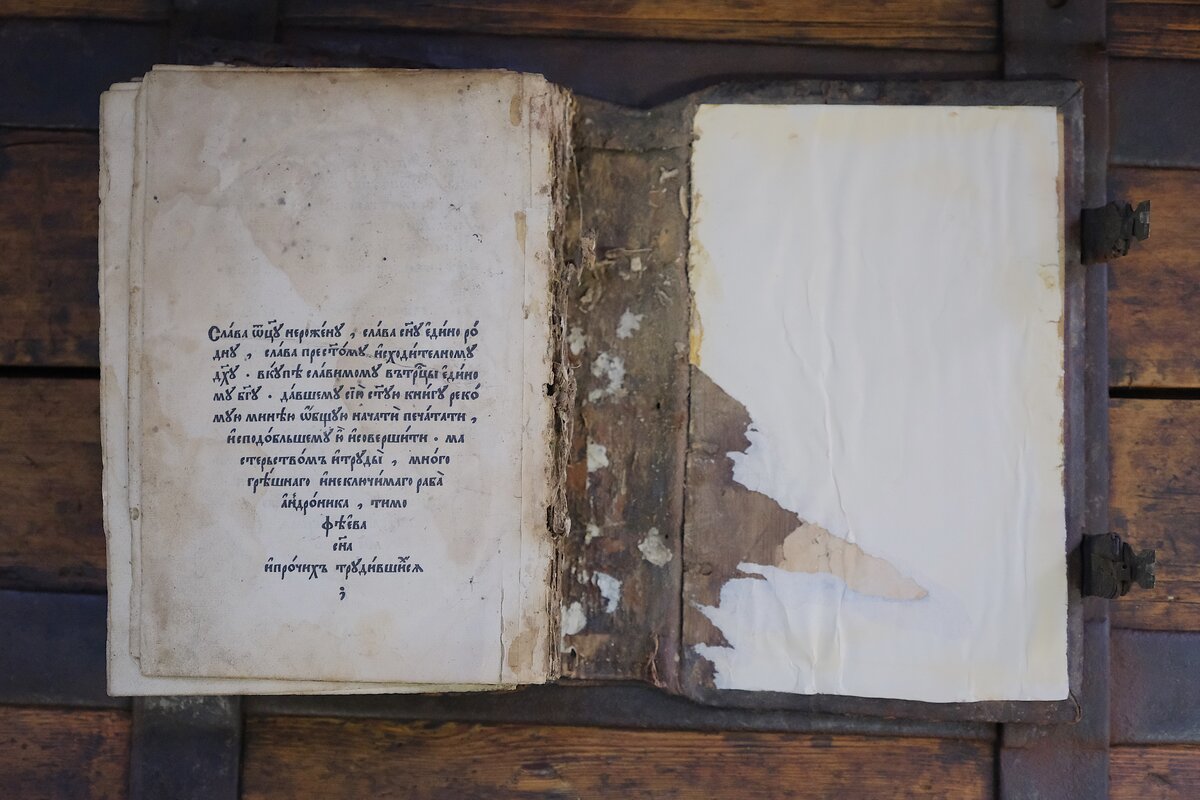 Сла́ва ѿц҃у нероже́ну , сла́ва сн҃у є҆ди́но ро́
дну , сла́ва прест҃о́му и҆сходи́телному
дх҃у . вкꙋ́пѣ сла́вимому вътрⷪ҇цы є҆ди́но
му бг҃у . да́вшему сїю̀ ст҃ую кни́гу реко́
мую мине́ю ѡ҆́бщую нача́ти печа́тати ,
и҆сподо́бльшему ю҆̀ и҆соверши́ти . ма
стерьство́мъ и҆труды̀ , мно́го
грѣ́шнаго и҆неключи́маго раба̀
а҆ндро́ника , тимо
фѣ́ева
сн҃а
и҆про́чихъ труди́вшихсѧ